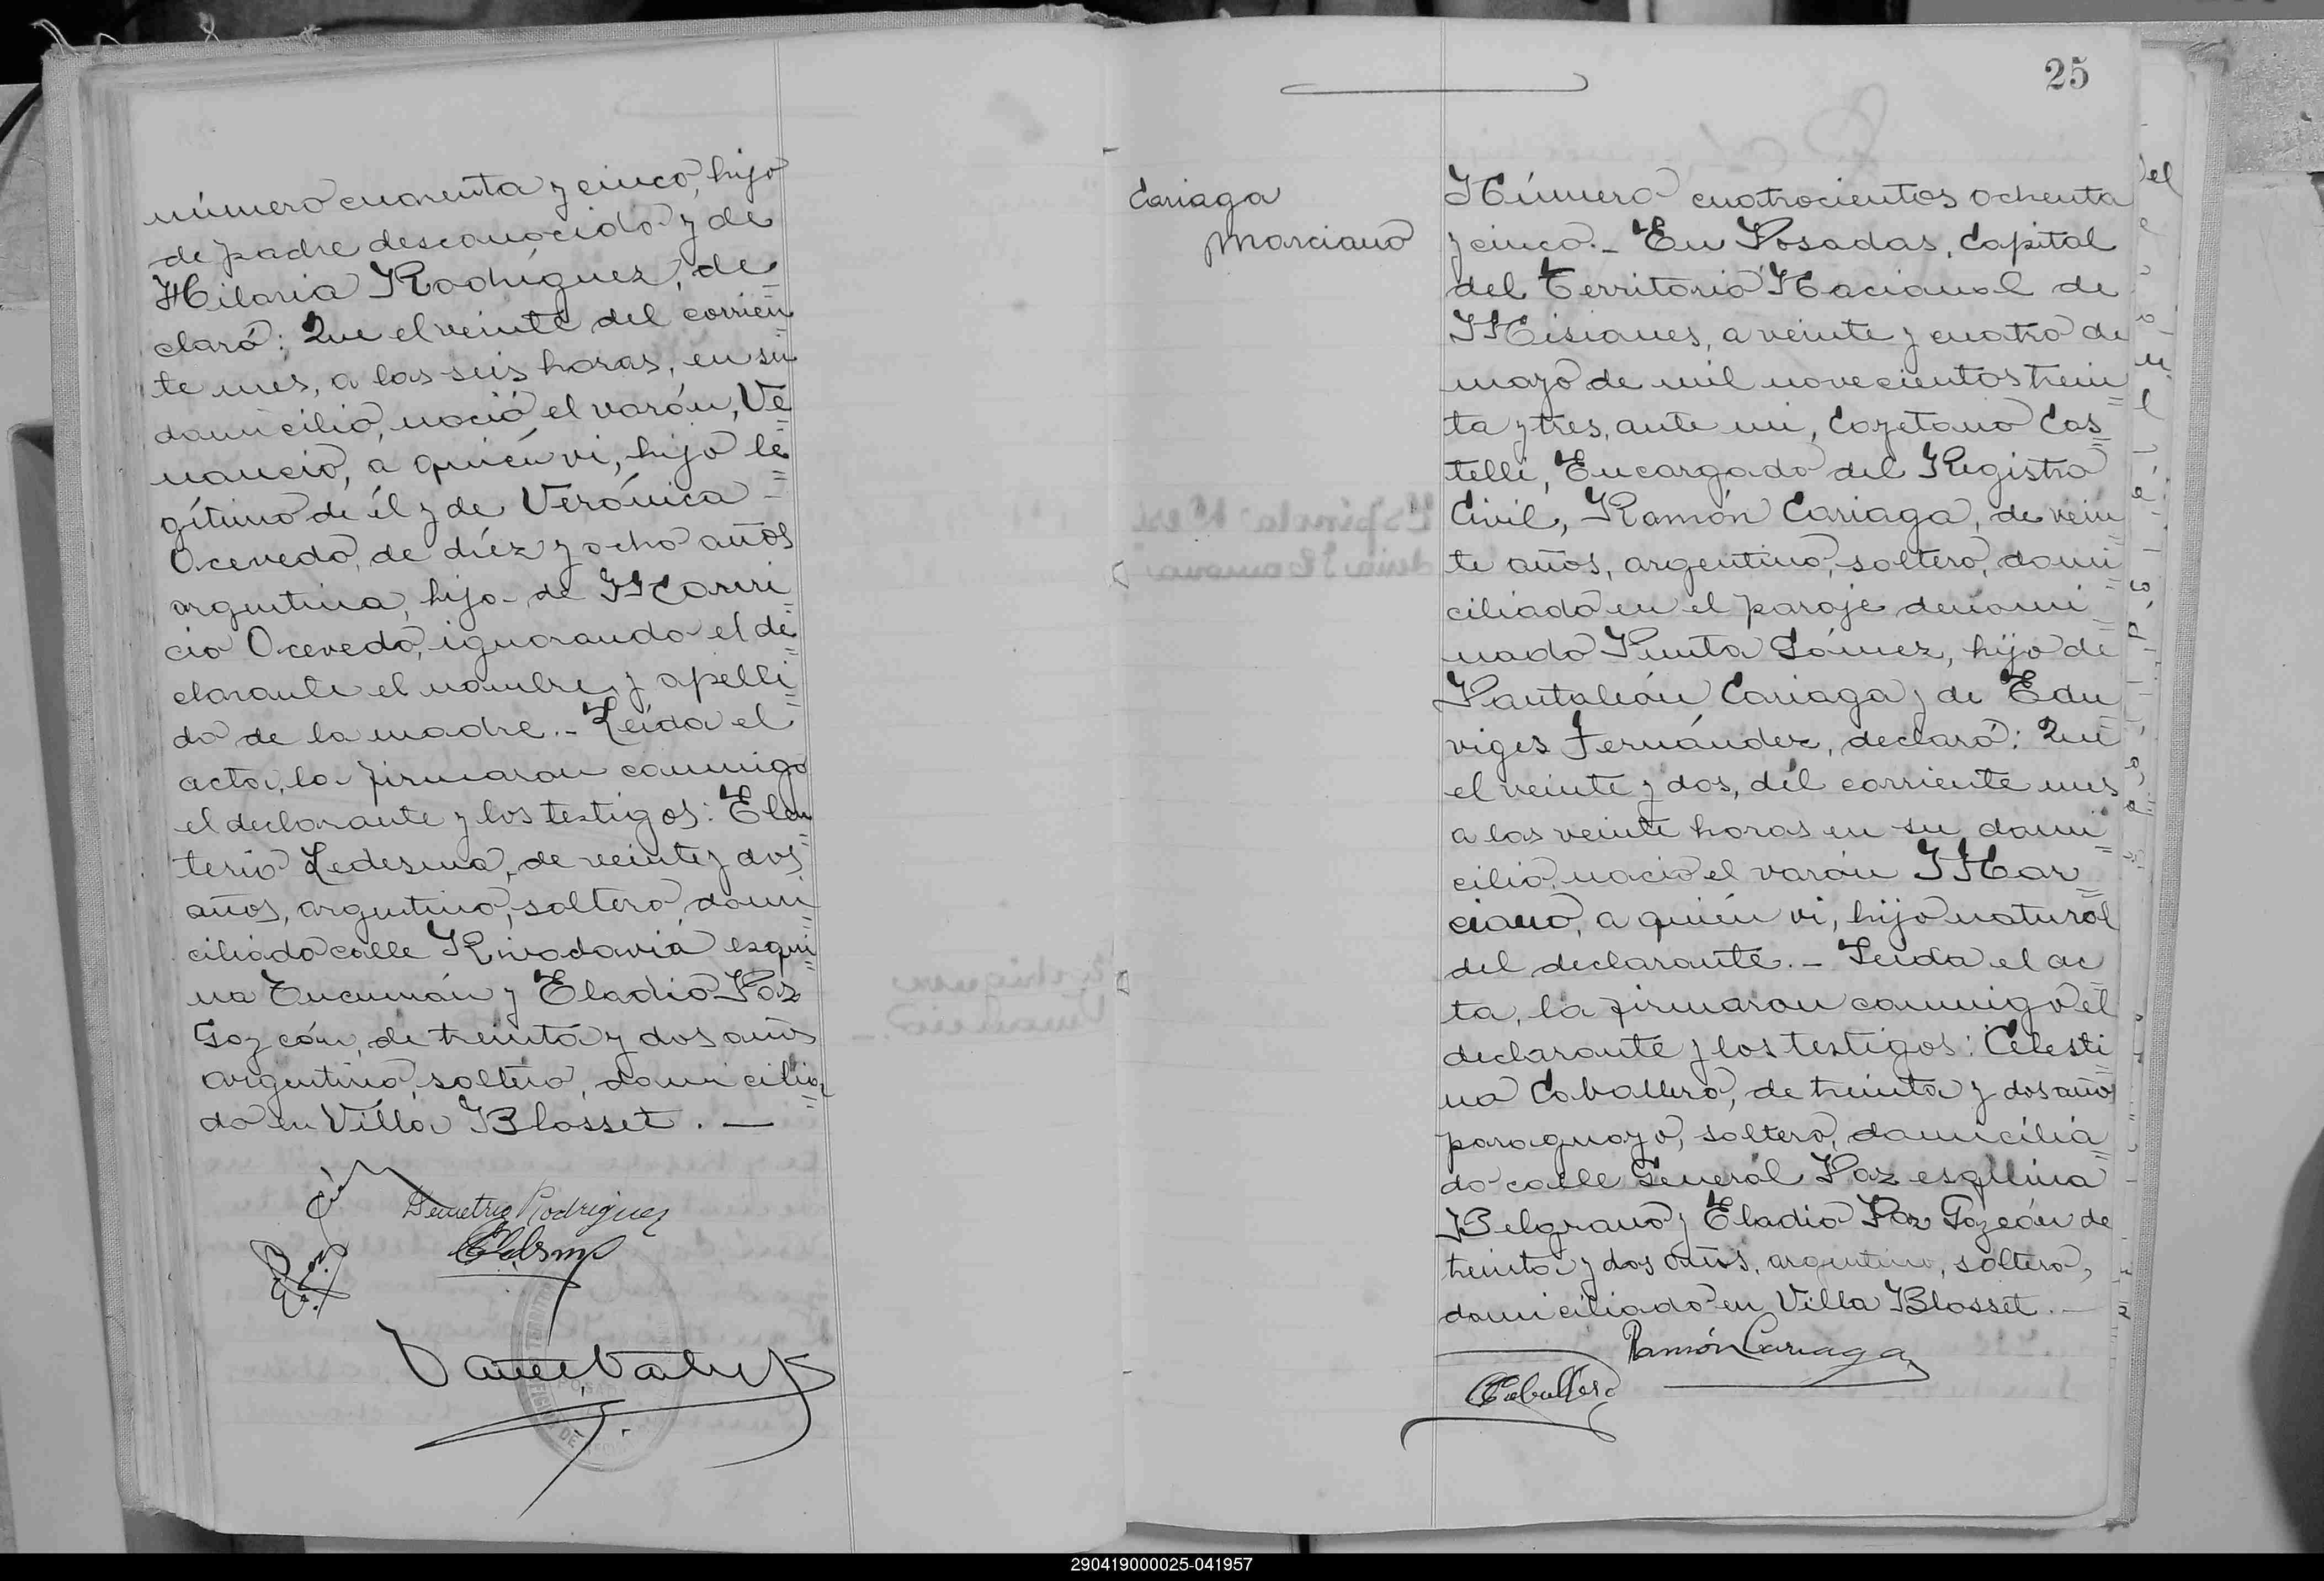 número cuarenta y cinco, hijo
de padre desconocido y de
Hilaria Rodríguez, de=
claró: Que el veinte del corrien=
te mes, a las seis horas, en su
domicilio, nació el varón, Ve=
nancio, a quién vi, hijo le=
gítimo de él y de Verónica
Acevedo, de diéz y ocho años
argentina, hija de Mauri=
cio Acevedo, ignorando el de=
clarante el nombre y apelli=
do de la madre.- Leída el
acta, la firmaron conmigo
el declarante y los testigos: Eleu=
terio Ledesma, de veinte y dos
años, argentino, soltero, domi=
ciliado calle Rivadavia esqui=
na Tucumán y Eladio Paz
Gayeón, de treinta y dos años
argentino, soltero, domicilia=
do en Villa Blosset.-
Demetrio Rodriguez
25
Cariaga
Marciano
Número cuatrocientos ochenta
y cinco.- En Posadas, Capital
del Territorio Nacional de
Misiones, a veinte y cuatro de
mayo de mil novecientos trein=
ta y tres, ante mi, Cayetano Cas=
telli, Encargado del Registro
Civil, Ramón Cariaga, de vein=
te años, argentino, soltero, domi=
ciliado en el paraje denomi=
nado Punta Gómez, hijo de
Pantaleón Cariaga y de Edu=
viges Fernández, declaró: Que
el veinte y dos, del corriente mes
a las veinte horas en su domi=
cilio, nació el varón Mar=
ciano, a quién vi, hijo natural
del declarante.- Leida el ac=
ta, la firmaron conmigo el
declarante y los testigos: Celesti=
no Caballero, de treinta y dos años
paraguayo, soltero, domicilia=
do calle General Paz esquina
Belgrano y Eladio Paz Gayeón de
treinta y dos años, argentino, soltero,
domiciliado en Villa Blosset.-
Ramón Cariaga
CCaballero
290419000025-041957